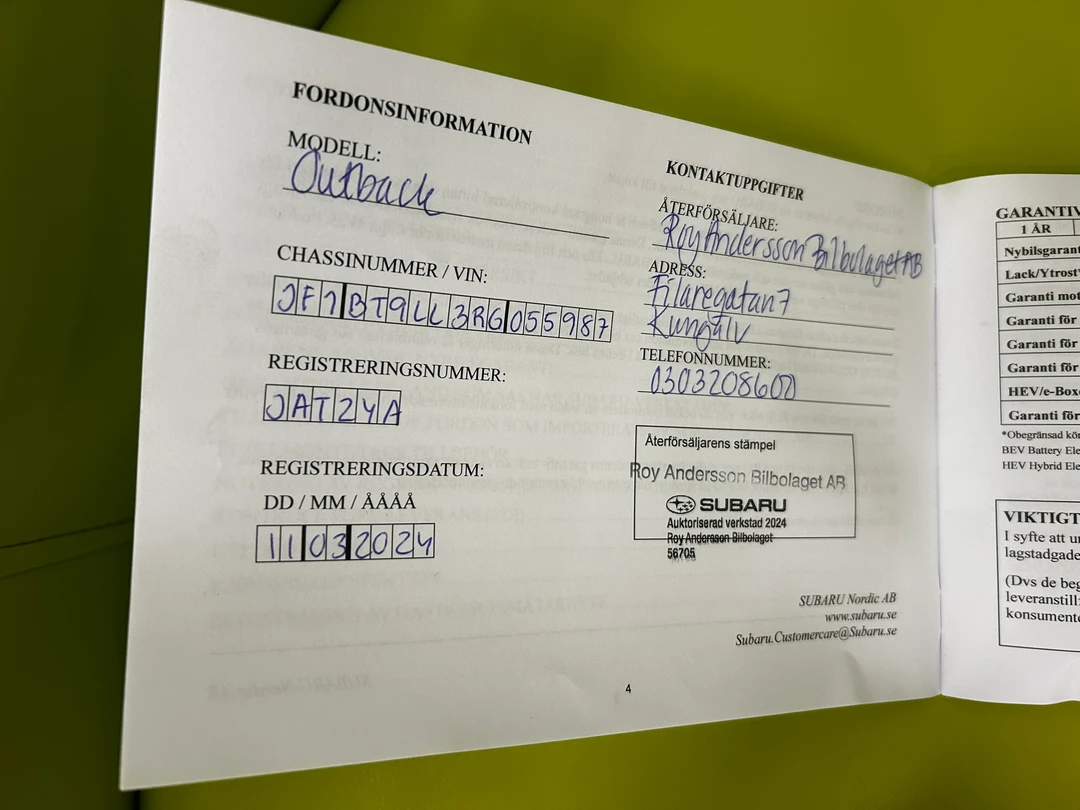 FORDONSINFORMATION
MODELL:
Outback
CHASSINUMMER / VIN:
JF1BT9LL3RG055987
REGISTRERINGSNUMMER:
JAT24A
REGISTRERINGSDATUM:
DD / MM / ÅÅÅÅ
11032024
KONTAKTUPPGIFTER
ÅTERFÖRSÄLJARE:
Roy Andersson Bilbolaget AB
ADRESS:
Filaregatan 7
Kungälv
TELEFONNUMMER:
0303208600
Återförsäljarens stämpel
Roy Andersson Bilbolaget AB
SUBARU
Auktoriserad verkstad 2024
Roy Andersson Bilbolaget
56705
SUBARU Nordic AB
www.subaru.se
Subaru.Customercare@Subaru.se
4
GARANTIV
1 ÅR
Nybilsgaran
Lack/Ytrost
Garanti mot
Garanti för
Garanti för
Garanti för
HEV/e-Box
Garanti för
*Obegränsad kö
BEV Battery Ele
HEV Hybrid Ele
VIKTIGT
I syfte att u
lagstadgade
(Dvs de beg
leveranstill
konsument